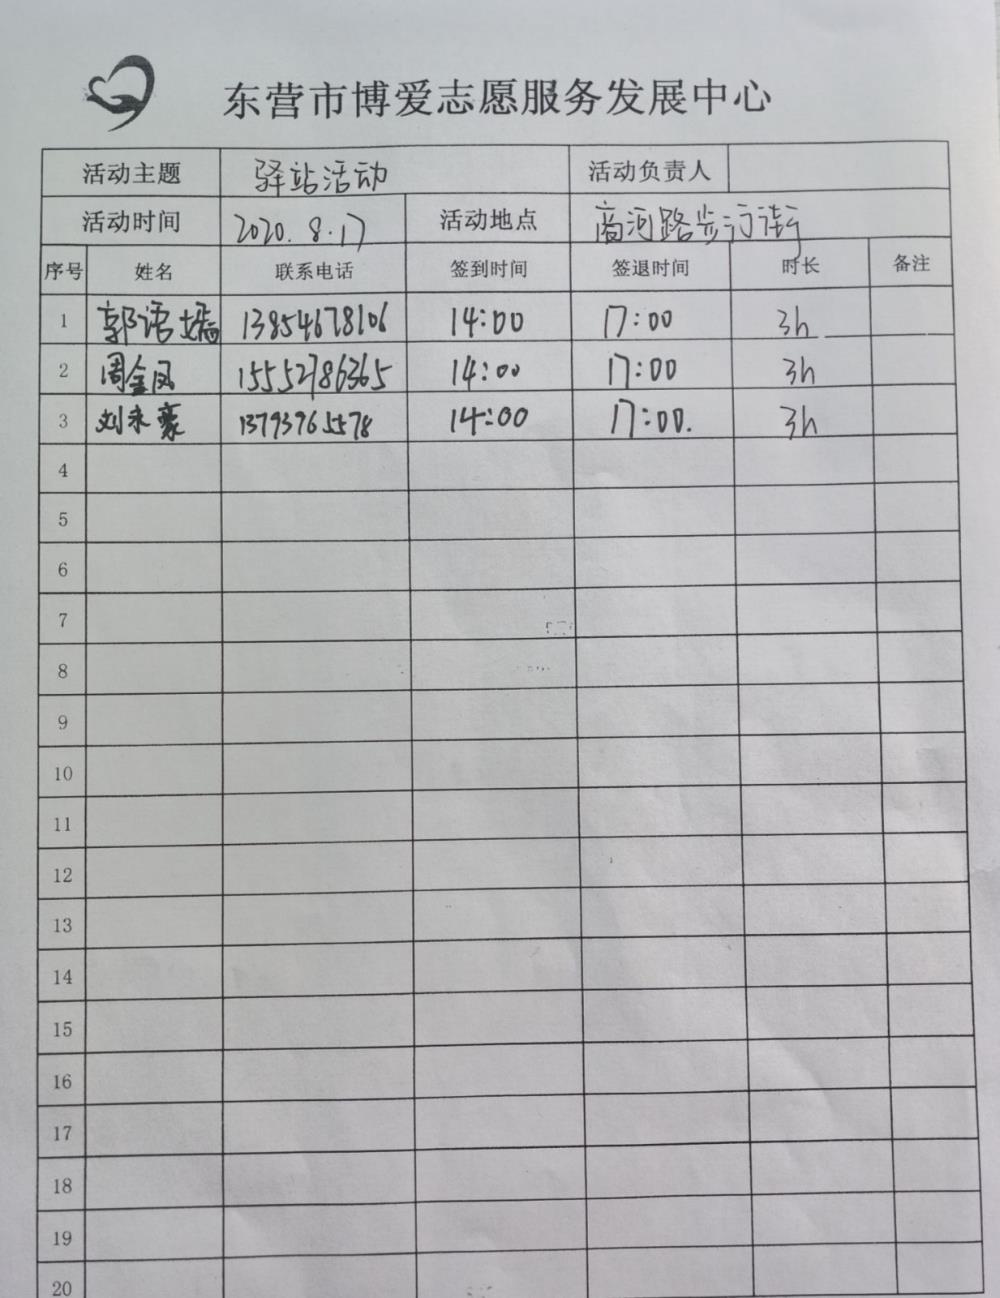 东营市博爱志愿服务发展中心
活动主题 驿站活动 活动负责人
活动时间 2020.8.17 活动地点 商河路步行街
序号 姓名 联系电话 签到时间 签退时间 时长 备注
1 郭语嫣 13854678106 14:00 17:00 3h
2 周金凤 15552786365 14:00 17:00 3h
3 刘永豪 13793965578 14:00 17:00. 3h
4
5
6
7
8
9
10
11
12
13
14
15
16
17
18
19
20